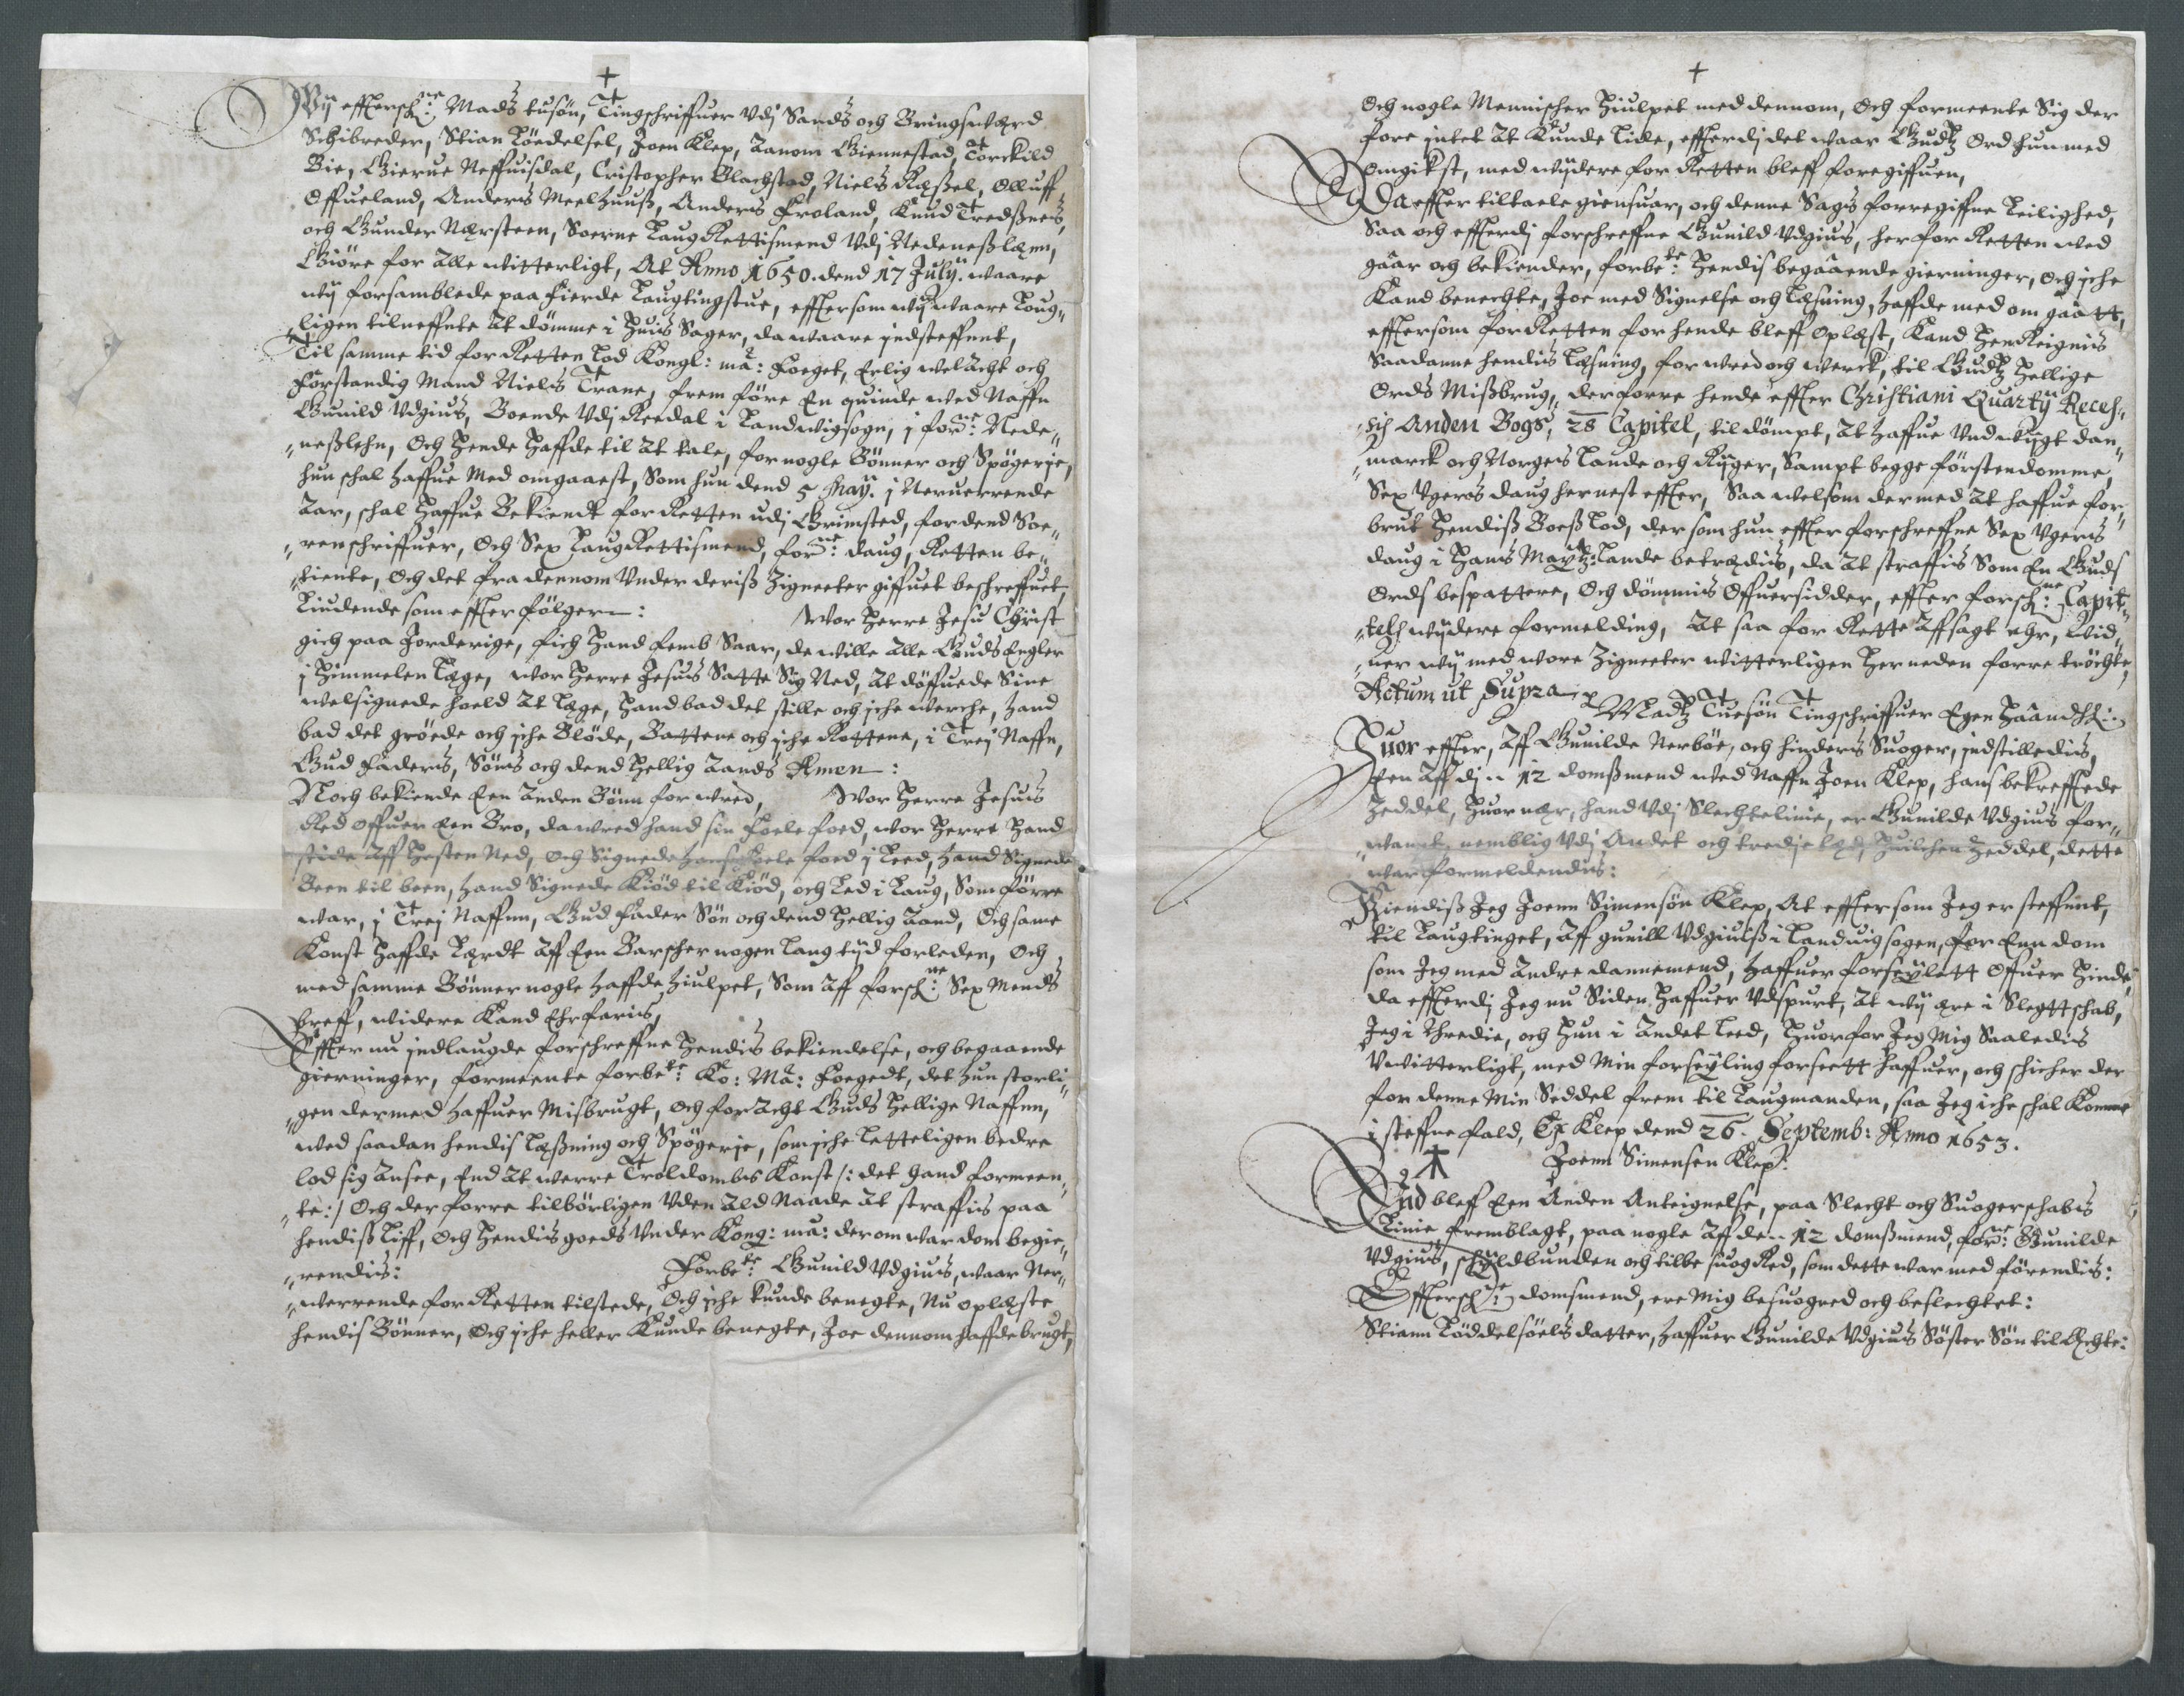 +
Wij effterschne: Mads tusön, Tingschriffuer Vdj Sands och Bringsværd
Schibreder, Stian Löedelsel, Joen Klep, Aanom Giennestad, Torckild
Bie, Gierue Neffuisdal, Cristopher Blachstad, Niels Næßel, Olluff
Offueland, Anders Meelhuuß, Anders Froland, Knud Tredßnes,
och Gunder Nærsteen, Soerne Laug Rettismend Vdj Nedeneßlæen,
Giöre for alle witterligt, At Anno 1650. dend 17 Julij. waare
wij forsamblede paa fierde Laugtingstue, efftersom wij waare Loug„
„ligen tilneffnte at dömme i huis Sager, da waare indsteffnet,
Til samme tid for Retten Lod Kongl: ma: Foeget, Erlig welacht och
Forstandig Mand Niels Trane, frem före En quinde wed Naffn
Gunild Vdgius, Boende Vdj Reedal i Landwigsogn, i forne: Nede„
„neßlehn, Och hende haffde til at tale, for nogle Bönner och Spögerje,
hun schal haffue med omgaaest, Som hun dend 5 Maij. i Neruerrende
Aar, schal haffue Bekiendt for Retten udj Grimsted, for dend Soe„
„renschriffuer, Och Sex Laug Rettismend, forne: daug, Retten be„
„tiente, Och det fra dennom Vnder deriß Zigneeter giffuet beschreffuet,
Liudende som effter fölger: Wor Herre Jesu Christ
gich paa Jorderige, fich hand femb Saar, de wille alle Guds Engler
i Himmelen Læge, wor Herre Jesus Satte Sig Ned, at döffuede Sine
welsignede hoeld at Læge, hand bad det stille och iche werche, hand
bad det gröede och iche Blöde, Battene och iche Rottene, i Trej Naffn,
Gud Faders, Söns och dend Hellig Aands Amen:
Noch bekiende Een Anden Bönn for wred, Wor Herre Jesus
Red offuer Een Bro, da wred hand sin foele foed, wor Herre hand
stide aff hesten Ned, och Signede hans foele foed i Leed, hand Signede
Been til been, hand Signede Kiöd til Kiöd, och Led i Laug, Som förre
war, i Trej Naffnn, Gud Fader Sön och dend Hellig Aand, Och same
Konst haffde Lærdt aff Een Barscher nogen Lang tijd forleden, Och
med samme Bönner nogle haffde hiulpet, Som aff forschne: Sex Mends
breff, widere Kand Ehrfaris,
Effter nu indlaugde forschreffne hendis bekiendelse, och begaaende
gierninger, formeente forbete: Ko: Ma: Foegedt, det hun storli„
„gen dermed haffuer Misbrugt, och foracht Guds Hellige Naffnn,
wed saadan hendis Læßning och Spögerje, som iche Letteligen bedre
lod sig ansee, End at werre Troldombs Konst /: det hand formeen„
„te: / Och der forre tilbörligen Vden ald Naade at straffis paa
hendiß Liff, Och hendis goeds Vnder Kong: ma: derom war dom begie„
„rendis: Forbete: Gunild Vdgius, waar Ner„
„werrende for Retten tilstede, Och iche kunde benegte, Nu oplæste
hendis Bönner, Och iche heller Kunde benegte, Joe dennom haffde brugt,
+
Och nogle Mennischer hiulpet med dennom, Och formeente Sig der
fore intet at Kunde Lide, effterdj det waar Gudtz Ord hun med
omgikst, med wijdere for Retten bleff foregiffuen,
Da effter tiltaele giensuar, och denne Sags foregiffne Leilighed,
Saa och effterdj forschreffne Gunild Vdgius, her for Retten wed
gaar och bekiender, forbete: hendis begaaende gierninger, Och iche
Kand benechte, Joe med Signelse och Læsning, haffde med om gaatt,
effter som for Retten for hende bleff Oplæst, Kand hendReignis
Saadanne hendis Læsning, for wred och werck, til Gudtz Hellige
Ords Mißbrug„ derforre hende effter Christiani Quartij Reces„
„sis Anden Bogs, 28 Capitel, til dömpt, at haffue Vndwijgt dan„
„marck och Norges Lande och Rijger, Sampt begge förstendomme,
Sex Vgers daug hernest effter, Saa welsom dermed at haffue for„
brut hendiß Boeß Lod, der som hun effter forschreffne Sex Vgers
daug i hans Maytz: Lande betrædis, da at straffis Som En Guds
Ords bespattere, Och dömmis Offuersidder, effter forschne: Capit„
„tels wijdere formelding, at saa for Rette affsagt ehr, Wid„
„ner wij med wore Zigneeter witterligen her neden forre tröchte,
Actum ut Supra
Madtz Tuesön Tingschriffuer Egen Haandt
Huor effter, aff Gunilde Nerböe, och hinders Suoger, indstilledis,
Een aff dj 12 domßmend wed Naffn Joen Klep, hans bekrefftede
Zeddel, huor nær, hand Vdj Slechtelinie, er Gunilde Vdgius for„
„wandt, nemblig Vdj Andet och tredie led, huilchen Zeddel, dette
war formeldendis:
Kiendiß Jeg Joenn Simensön Klep, At efftersom Jeg er steffnnt,
til Laugtinget, aff gunill Vdgiuß i Landuigsogen, for Enn dom
som Jeg med andre dannemend, haffuer forseiglett Offuer hinde,
da effterdj Jeg nu Siden haffuer Vdspurt, at wij ere i Slegttschab,
Jeg i thredie, och hun i andet Leed, huorfor Jeg Mig Saaledis
Vwitterligt, med Min forseigling forseett haffuer, och schicher der
for denne Min Seddel frem til Laugmanden, saa Jeg iche schal Komme
i steffnefald, Ex Klep dend 26. Septemb: Anno 1653.
Joenn Simensen Klep:
End blef Een Anden Anteignelse, paa Slecht och Suogerschabs
Linie, fremblagt, paa nogle aff de 12 domßmend, forne: Gunilde
Vdgius, schyldbunden och tilbesuogRed, som dette war med förendis:
Efftersch: domsmend, ere Mig besuogred och beslechtet:
Stiann Löddelsöels datter, haffuer Gunilde Vdgius Söster Sön til Echte: